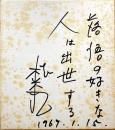 落語の好きな
人は出世する
1969.1.15.